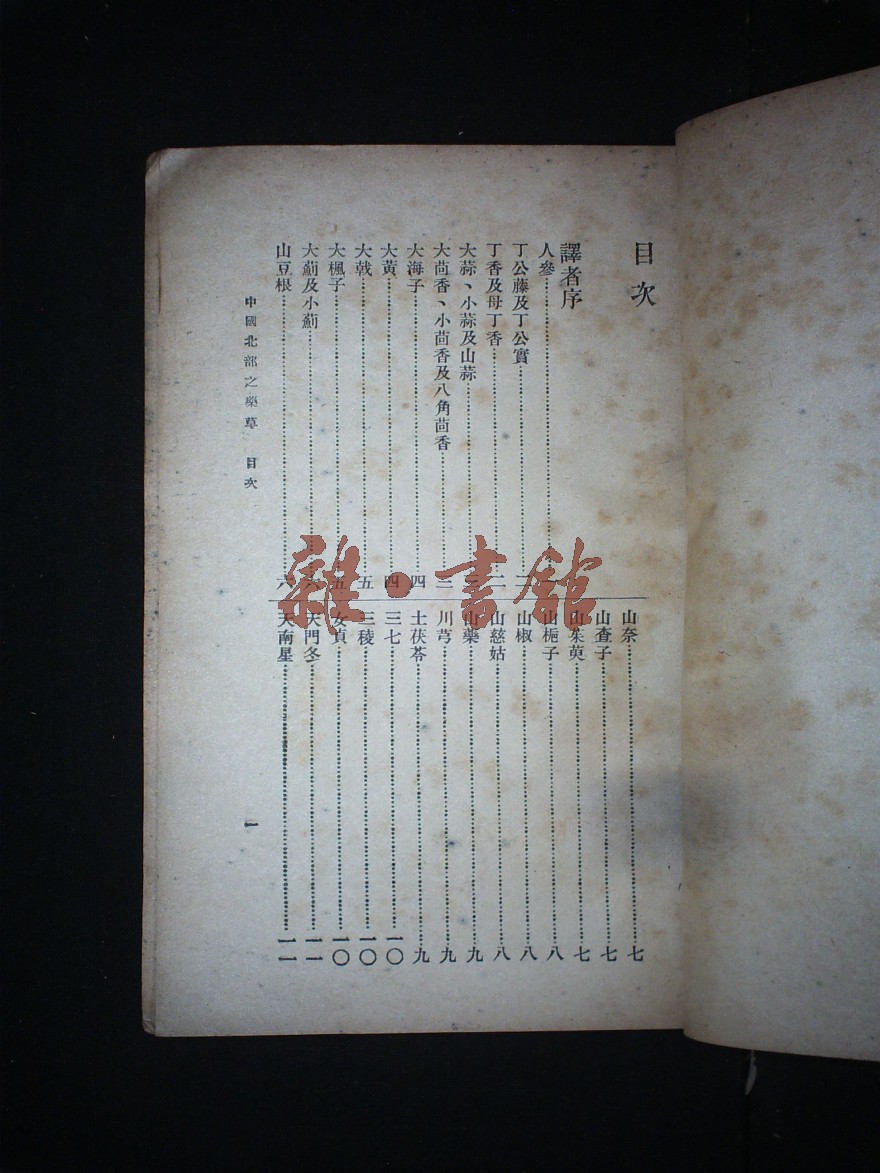 目次
譯者序
人參……一
丁公藤及丁公實……二
丁香及母丁香……二
大蒜、小蒜及山蒜……
大茴香、小茴香及八角茴香……三
大海子……四
大黃……四
大戟……五
大楓子……五
大薊及小薊……六
山豆根……六
山奈……七
山查子……七
山茱萸……七
山梔子……八
山椒……八
山慈姑……八
山藥……九
川芎……九
土茯苓……九
三七……一〇
三稜……一〇
女貞……一〇
天門冬……一一
天南星……一一
中國北部之藥草 目次
一
雜·書館